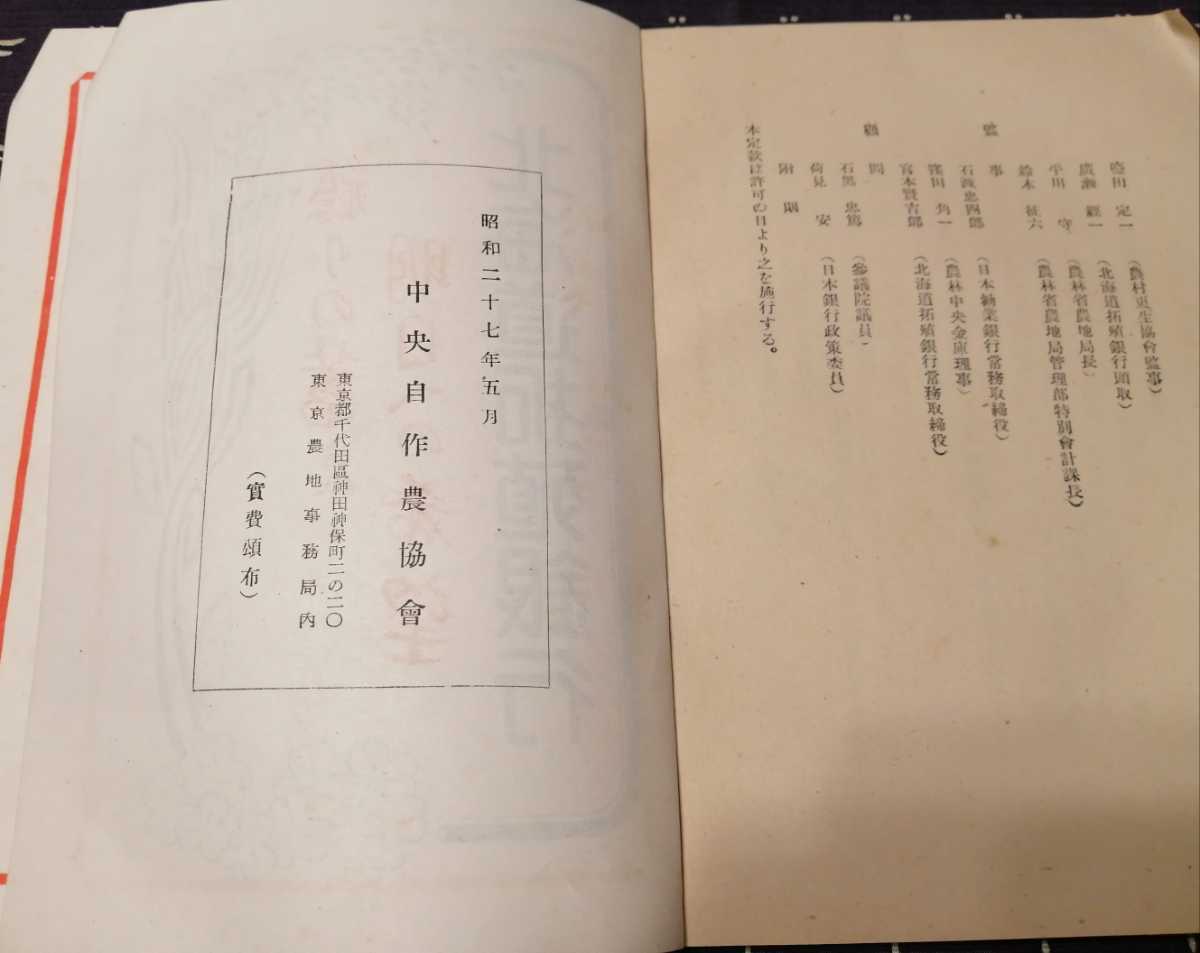 田 定一 (農村更生協會監事)
廣瀨 經一 (北海道拓殖銀行頭取)
平川 守 (農林省農地局長)
鈴木 征六 (農林省農地局管理部特別會計課長)
監事
石渡忠四郎 (日本勧業銀行常務取締役)
窪田 角一 (農林中央金庫理事)
宮本賢吉郎 (北海道拓殖銀行常務取締役)
顧問
石黑 忠篤 (參議院議員)
荷見 安 (日本銀行政策委員)
附則
本定款は許可の日より之を施行する。
昭和二十七年五月
中央自作農協會
東京都千代田區神田神保町二の二〇
東京農地事務局內
(實費頒布)